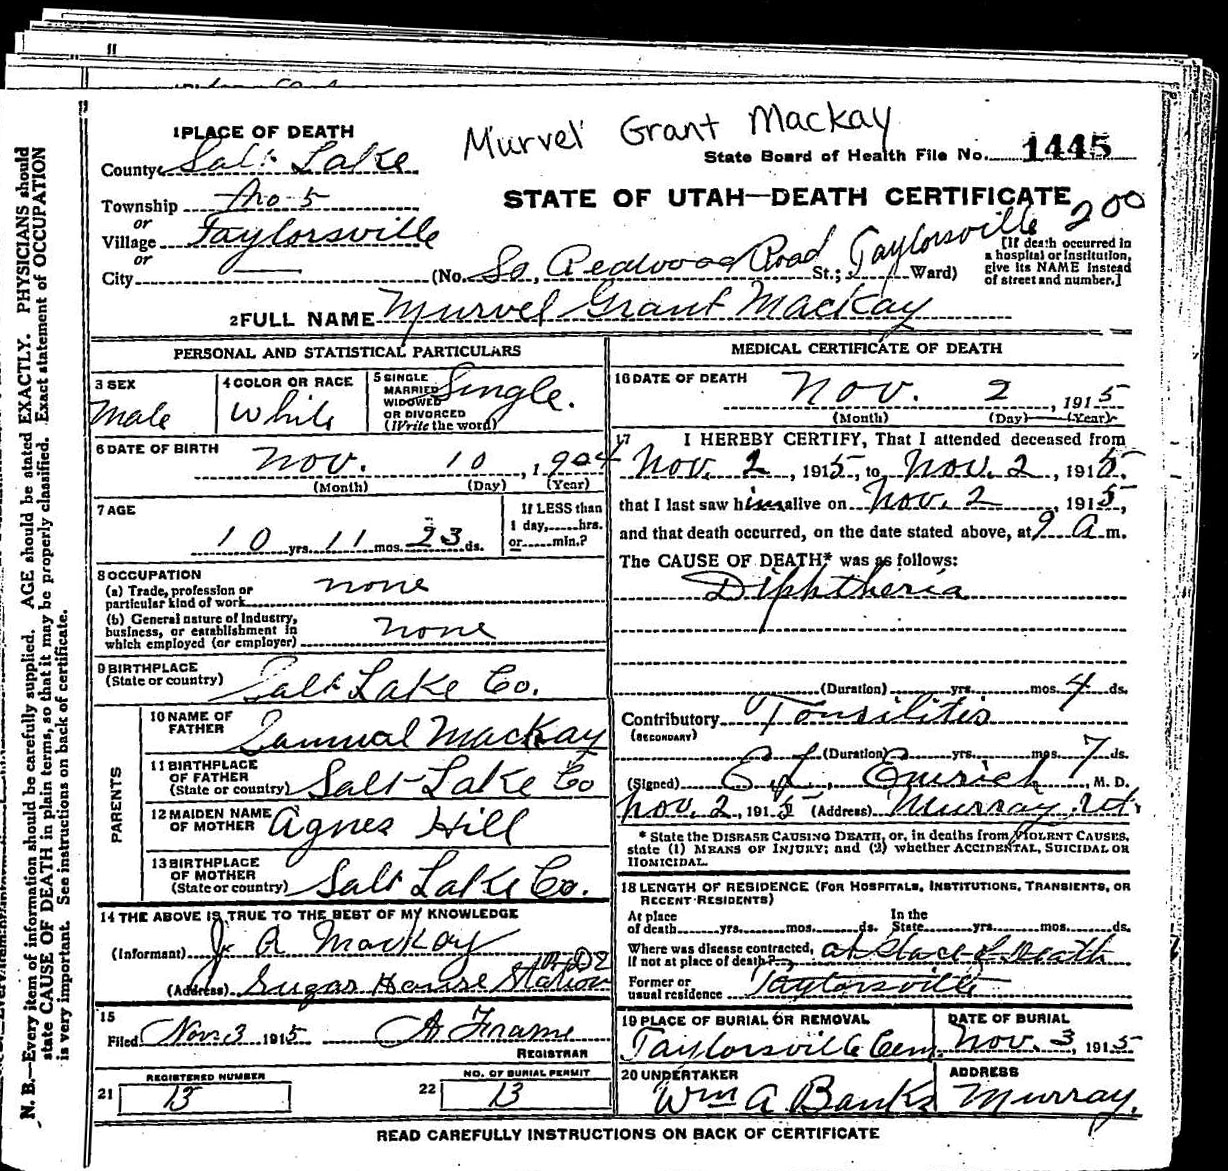 Murvel Grant Mackay
1 PLACE OF DEATH
County Salt Lake
State Board of Health File No. 1445
Township No 5
STATE OF UTAH—DEATH CERTIFICATE
200
or
Village Taylorsville
or
City (No. So, Redwood Road St.; Taylorsville Ward)
[If death occurred in
a hospital or institution,
give its NAME instead
of street and number.]
2 FULL NAME Murvel Grant Mackay
PERSONAL AND STATISTICAL PARTICULARS
3 SEX
Male
4 COLOR OR RACE
White
5 SINGLE
MARRIED
WIDOWED
OR DIVORCED
(Write the word)
Single.
6 DATE OF BIRTH
Nov. 10, 1904
(Month) (Day) (Year)
7 AGE
10 yrs. 11 mos. 23 ds.
If LESS than
1 day,......hrs.
or......min.?
8 OCCUPATION
(a) Trade, profession or
particular kind of work none
(b) General nature of Industry,
business, or establishment in
which employed (or employer) none
9 BIRTHPLACE
(State or country) Salt Lake Co.
PARENTS
10 NAME OF
FATHER Samual Mackay
11 BIRTHPLACE
OF FATHER
(State or country) Salt Lake Co
12 MAIDEN NAME
OF MOTHER Agnes Hill
13 BIRTHPLACE
OF MOTHER
(State or country) Salt Lake Co.
14 THE ABOVE IS TRUE TO THE BEST OF MY KNOWLEDGE
(Informant) J. R Mackay
(Address) Sugar House Station
15
Filed Nov 3 1915 A Frame
REGISTRAR
REGISTERED NUMBER
21 13
NO. OF BURIAL PERMIT
22 13
MEDICAL CERTIFICATE OF DEATH
16 DATE OF DEATH
Nov. 2, 1915
(Month) (Day) (Year)
17 I HEREBY CERTIFY, That I attended deceased from
Nov. 2, 1915, to Nov. 2, 1915,
that I last saw him alive on Nov. 2, 1915,
and that death occurred, on the date stated above, at 9 a m.
The CAUSE OF DEATH* was as follows:
Diphtheria
(Duration) yrs. mos. 4 ds.
Contributory Tonsilitis
(SECONDARY)
(Duration) yrs. mos. 7 ds.
(Signed) C L, Emrich, M. D.
Nov. 2, 1915 (Address) Murray, Ut.
* State the DISEASE CAUSING DEATH, or, in deaths from VIOLENT CAUSES,
state (1) MEANS OF INJURY; and (2) whether ACCIDENTAL, SUICIDAL OR
HOMICIDAL.
18 LENGTH OF RESIDENCE (FOR HOSPITALS, INSTITUTIONS, TRANSIENTS, OR
RECENT RESIDENTS)
At place
of death......yrs......mos......ds.
In the
State......yrs......mos......ds.
Where was disease contracted,
if not at place of death? at place of Death
Former or
usual residence Taylorsville
19 PLACE OF BURIAL OR REMOVAL
Taylorsville Cem.
DATE OF BURIAL
Nov. 3, 1915
20 UNDERTAKER
Wm A. Banks
ADDRESS
Murray.
READ CAREFULLY INSTRUCTIONS ON BACK OF CERTIFICATE
N. B.—Every item of information should be carefully supplied. AGE should be stated EXACTLY. PHYSICIANS should
state CAUSE OF DEATH in plain terms, so that it may be properly classified. Exact statement of OCCUPATION
is very important. See instructions on back of certificate.